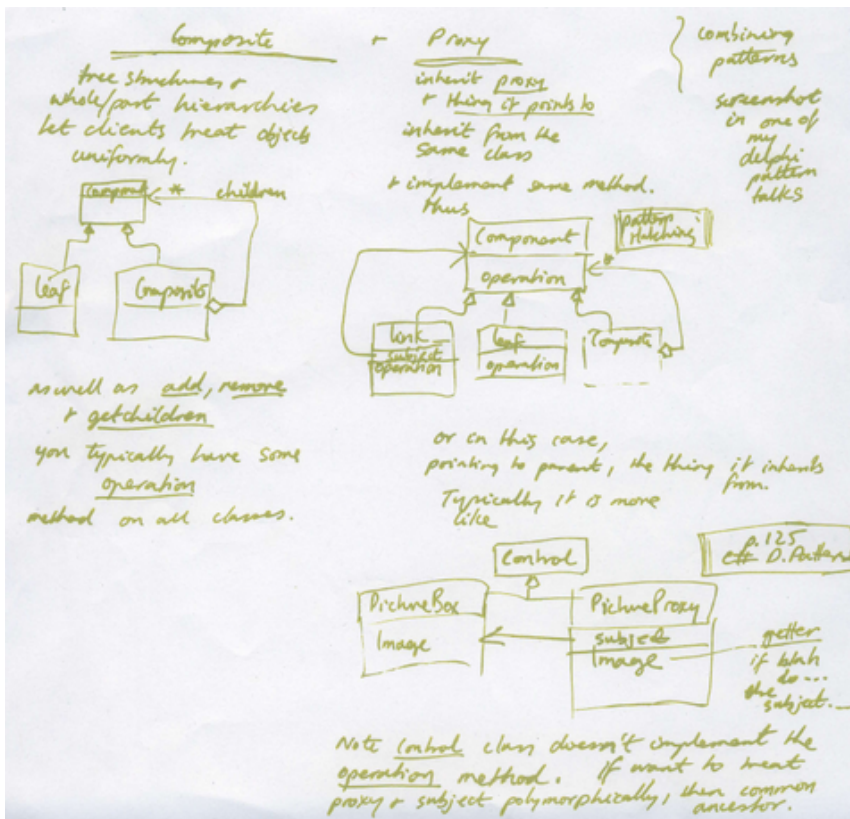 Composite + Proxy
tree structures +
whole/part hierarchies
let clients treat objects
uniformly.
Component * children
leaf Composite
as well as add, remove
+ getchildren
you typically have some
operation
method on all classes.
inherit proxy
+ thing it points to
inherit from the
same class
+ implement same method.
thus
combining
patterns
screenshot
in one of
my
delphi
pattern
talks
Component
operation
pattern
Hatching
*
link
subject
operation
leaf
operation
Composite
or in this case,
pointing to parent, the thing it inherits
from.
Typically it is more
like
Control
p.125
C# D.Pattern
PictureBox
Image
PictureProxy
subject
Image
getter
if blah
do...
the
subject...
Note Control class doesn't implement the
operation method. If want to treat
proxy + subject polymorphically, then common
ancestor.